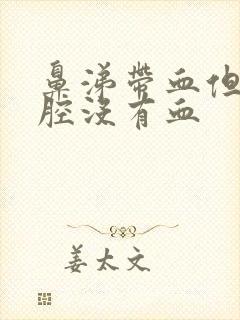 鼻涕带血但
腔没有血
姜太文